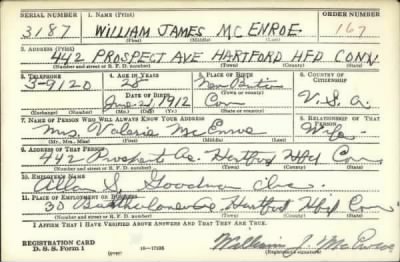 SERIAL NUMBER 1. NAME (Print) ORDER NUMBER
3187 WILLIAM JAMES MC ENROE 167
(First) (Middle) (Last)
2. ADDRESS (Print)
442 PROSPECT AVE HARTFORD HFD CONN.
(Number and street or R. F. D. number) (Town) (County) (State)
3. TELEPHONE 4. AGE IN YEARS 5. PLACE OF BIRTH 6. COUNTRY OF CITIZENSHIP
3-9120 28 New Britain
DATE OF BIRTH
1912 Conn U. S. A.
(Exchange) (Number) (Mo.) (Day) (Yr.) (State or country)
7. NAME OF PERSON WHO WILL ALWAYS KNOW YOUR ADDRESS 8. RELATIONSHIP OF THAT PERSON
Mrs. Valerie McEnroe Wife
(Mr., Mrs., Miss) (First) (Middle) (Last)
9. ADDRESS OF THAT PERSON
442 Prospect Ave. Hartford Hfd Conn
(Number and street or R. F. D. number) (Town) (County) (State)
10. EMPLOYER'S NAME
Allan S. Goodman Inc
11. PLACE OF EMPLOYMENT OR BUSINESS
30 Bartholomew Ave Hartford Hfd Conn
(Number and street or R. F. D. number) (Town) (County) (State)
I AFFIRM THAT I HAVE VERIFIED ABOVE ANSWERS AND THAT THEY ARE TRUE.
REGISTRATION CARD
D. S. S. Form 1 (over) 16—17105 William J. McEnroe